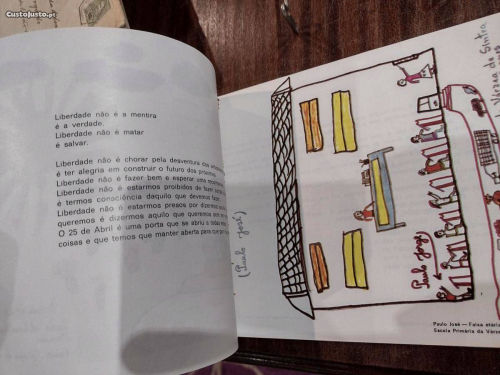 CustoJusto.pt
Liberdade não é a mentira
é a verdade.
Liberdade não é matar
é salvar.
Liberdade não é chorar pela desventura dos
é ter alegria em construir o futuro dos próximos.
Liberdade não é fazer bem e esperar uma
Liberdade não é estarmos proibidos de fazer
é termos consciência daquilo que devemos fazer.
Liberdade não é estarmos presos por dizermos
queremos é dizermos aquilo que queremos em
O 25 de Abril é uma porta que se abriu a todas
coisas e que temos que manter aberta para que
(Paulo José)
Paulo Jorge
de Sintra
Paulo José — Faixa etária
Escola Primária da Várzea